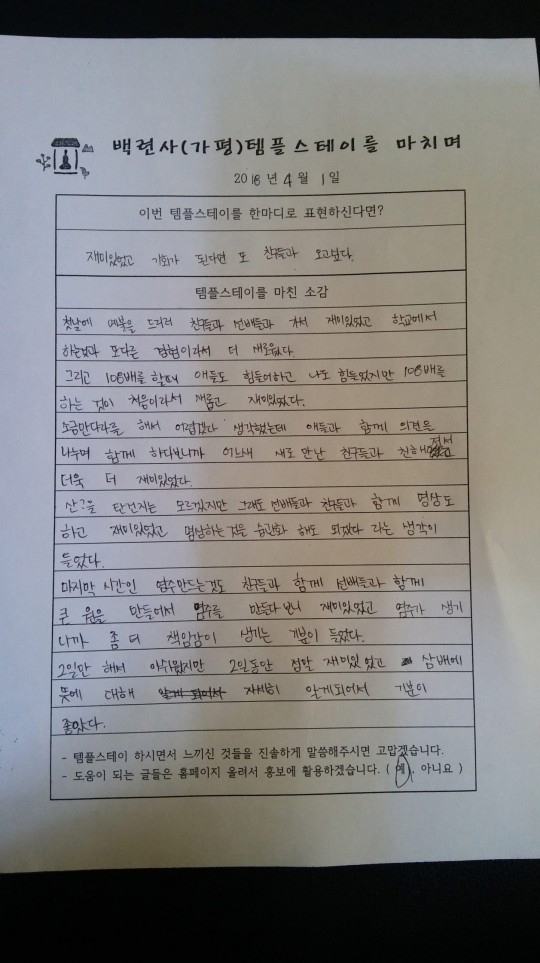 백련사(가평)템플스테이를 마치며
2018년 4월 1일
이번 템플스테이를 한마디로 표현하신다면?
재미있었고 기회가 된다면 또 친구들과 오고싶다.
템플스테이를 마친 소감
첫날에 예복을 드리러 친구들과 선배들과 가서 재미있었고 학교에서
하는것과 또다른 경험이라서 더 새로웠다.
그리고 108배를 할때 애들도 힘들어하고 나도 힘들었지만 108배를
하는 것이 처음이라서 새롭고 재미있었다.
소금만다라를 해서 어렵겠다 생각했는데 애들과 함께 의견을
나누며 함께 하다보니까 어느새 새로 만난 친구들과 친해져서
더욱 더 재미있었다.
모르겠지만 그래도 선배들과 친구들과 함께 명상도
하고 재미있었고 명상하는것을 습관화 해도 되겠다 라는 생각이
들었다.
마지막 시간인 염주만드는것도 친구들과 함께 선배들과 함께
큰 원을 만들어서 염주를 만들다 보니 재미있었고 염주가 생기
니까 좀 더 책임감이 생기는 기분이 들었다.
2일만 해서 아쉬웠지만 2일동안 정말 재미있었고 삼배에
뜻에 대해 알게 되어서 자세히 알게되어서 기분이
좋았다.
- 템플스테이 하시면서 느끼신 것들을 진솔하게 말씀해주시면 고맙겠습니다.
- 도움이 되는 글들은 홈페이지 올려서 홍보에 활용하겠습니다. ( 예, 아니요 )